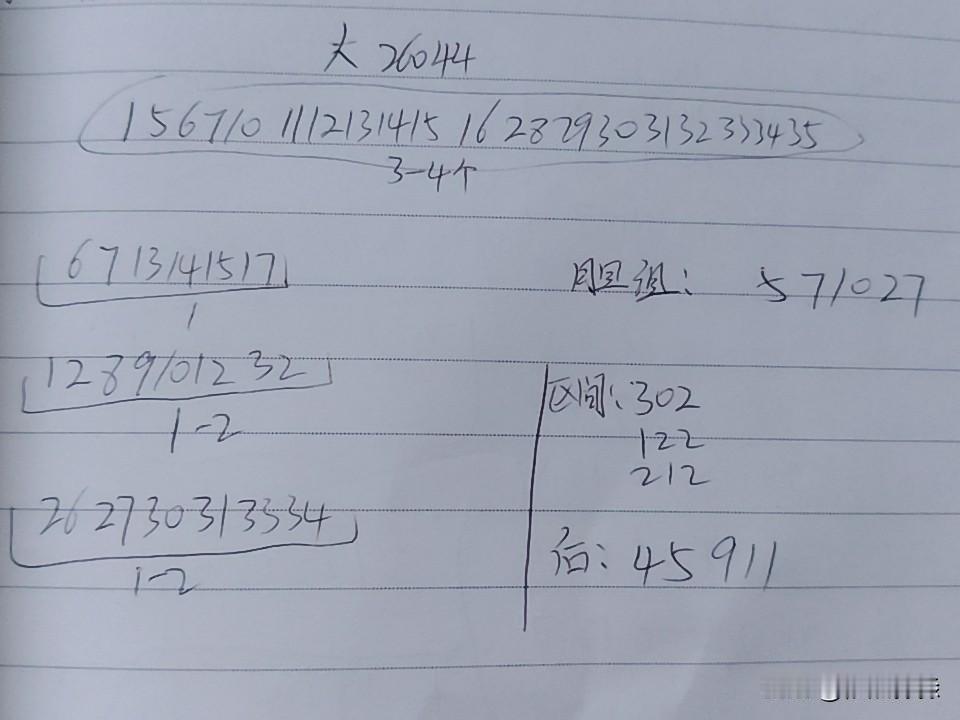 大 26044
1 5 6 7 10 11 12 13 14 15 16 28 29 30 31 32 33 34 35
3-4个
6 7 13 14 15 17
1
胆组: 5 7 10 27
1 2 8 9 10 12 32
1-2
区间: 302
122
212
26 27 30 31 33 34
1-2
后: 4 5 9 11